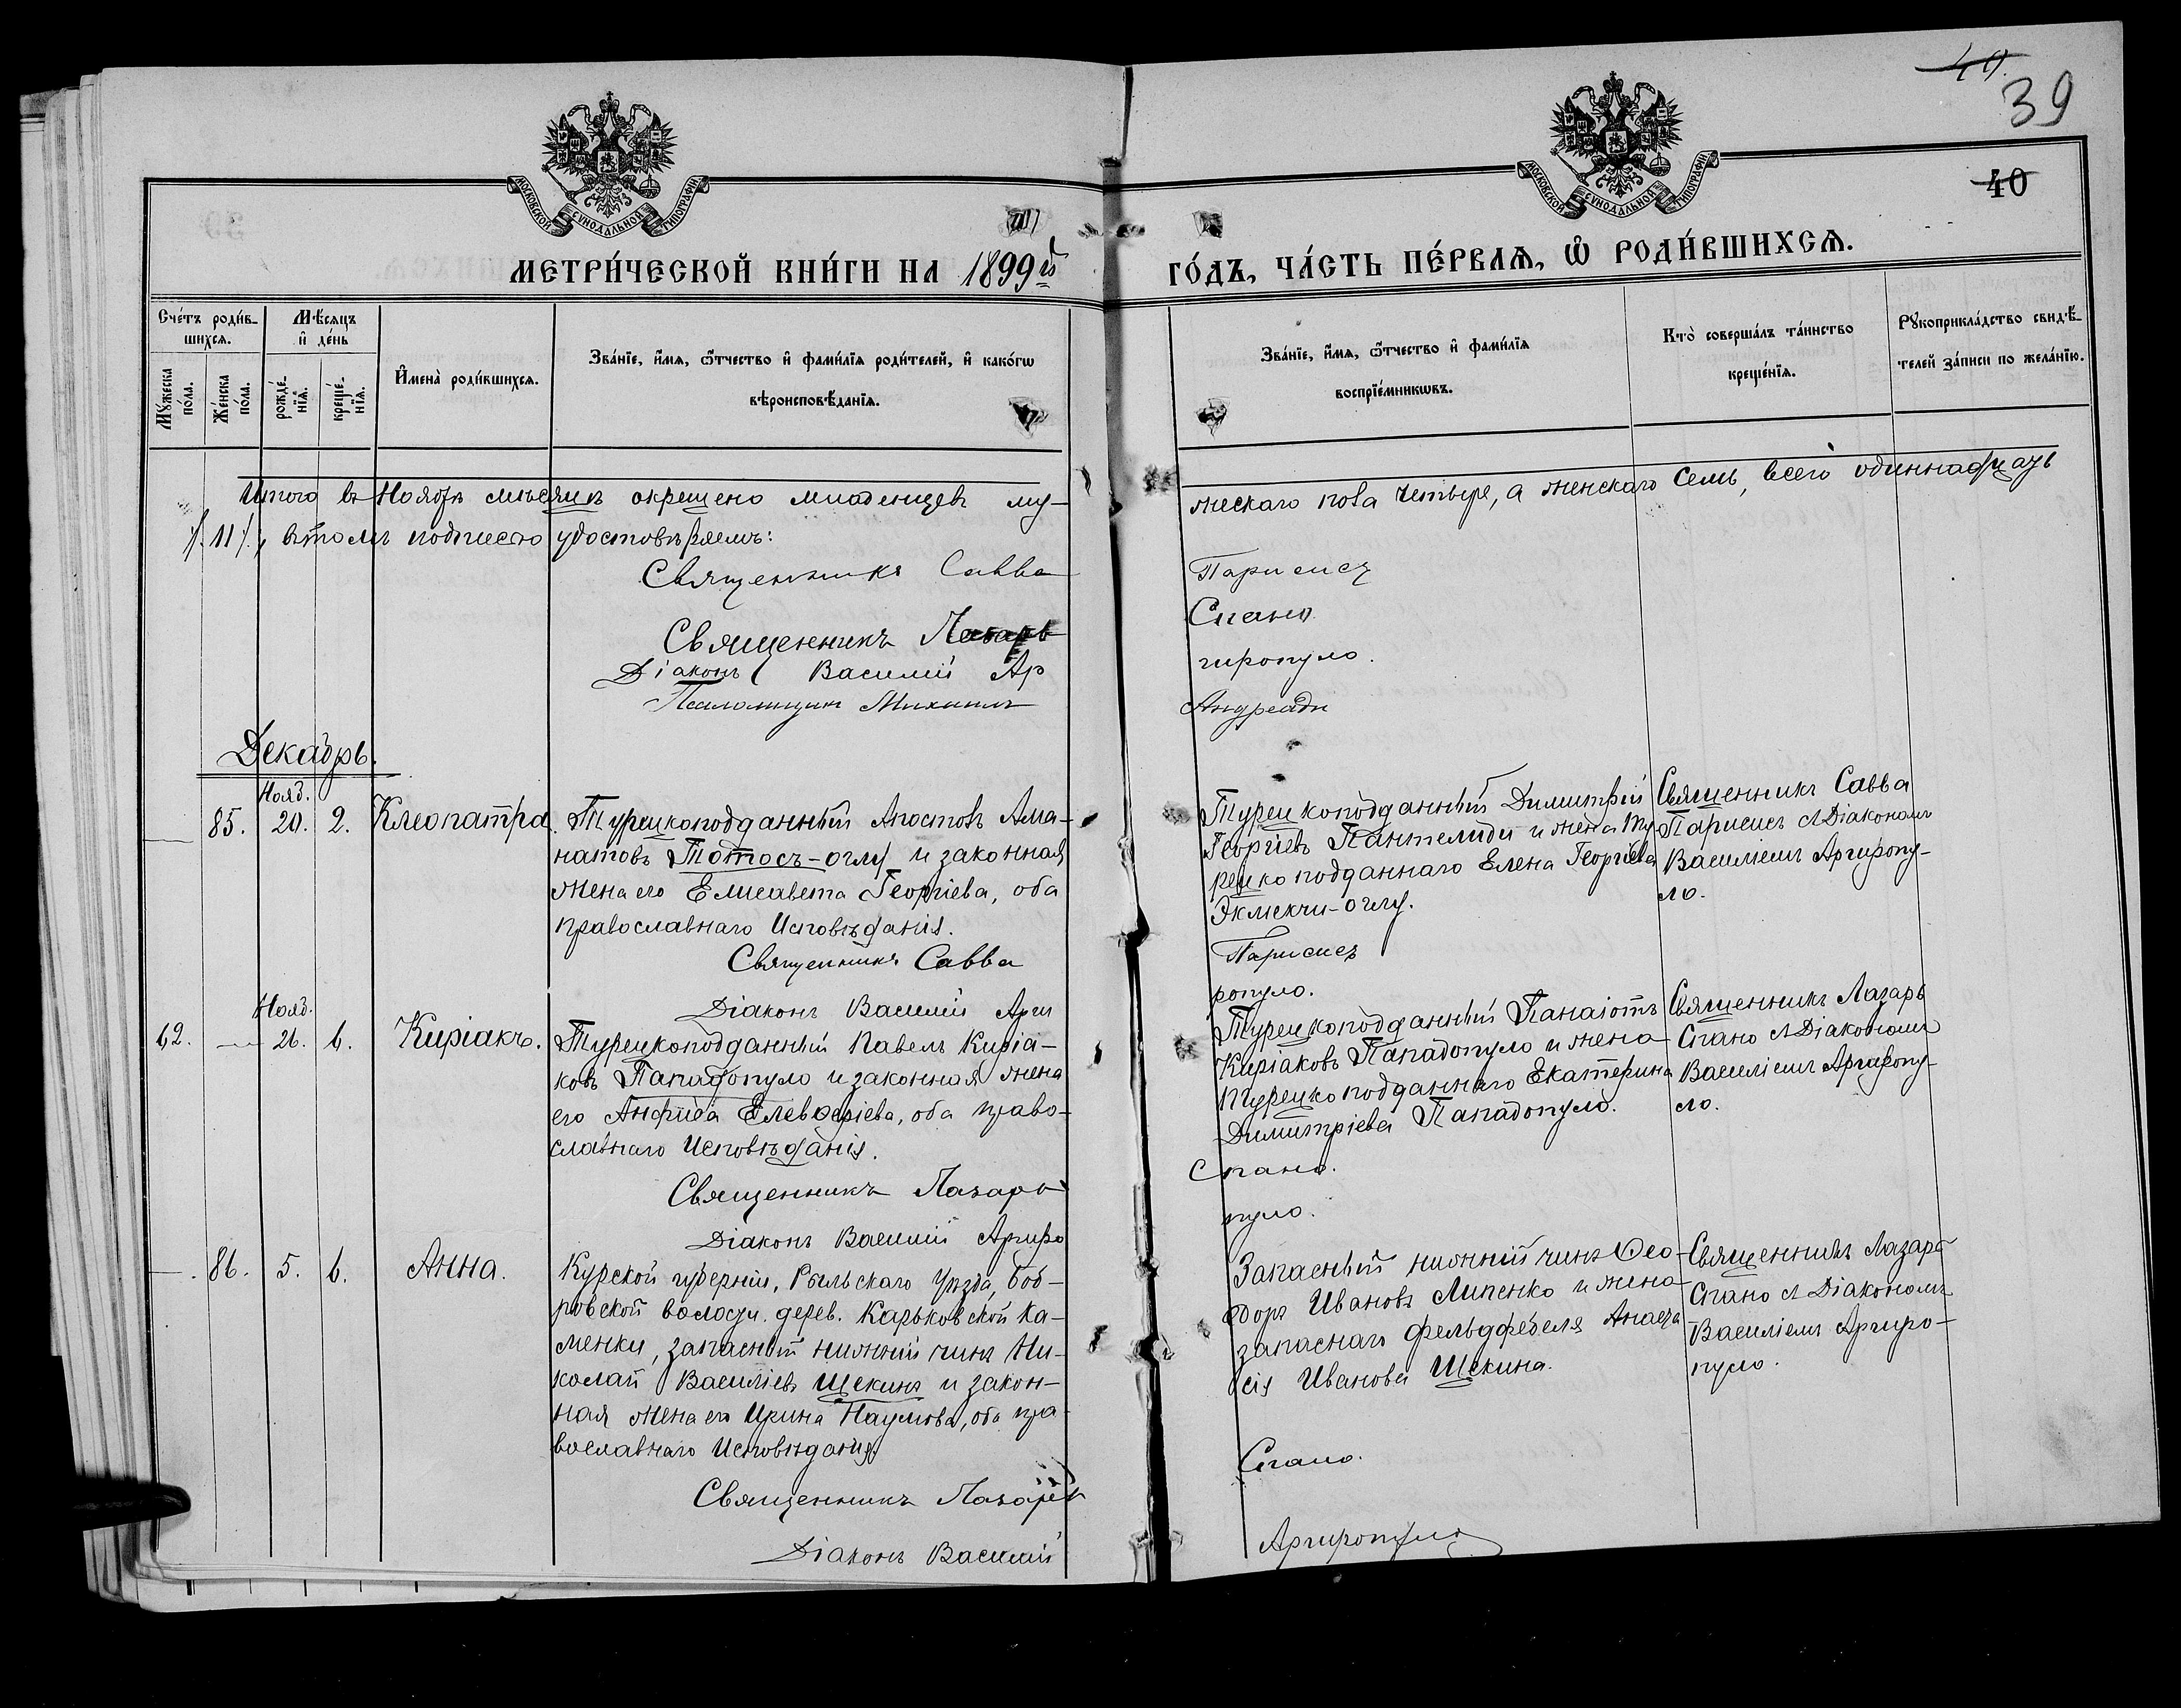 49.
39
40
МОСКОВСКОЙ СѴНОДАЛЬНОЙ ТИПОГРАФІИ
МОСКОВСКОЙ СѴНОДАЛЬНОЙ ТИПОГРАФІИ
МЕТРИ́ЧЕСКОЙ КНИ́ГИ НА 1899й
ГО́ДЪ, ЧА́СТЬ ПЕ́РВАѦ, Ѡ҆ РОДИ́ВШИХСѦ.
Сче́тъ роди́в-
шихсѧ.
Мꙋ́жеска по́ла.
Же́нска по́ла.
Мѣ́сѧцъ и҆ де́нь
рожде́-
нїѧ.
креще́-
нїѧ.
И҆мена̀ роди́вшихсѧ.
Зва́нїе, и҆́мѧ, ѻ҆́тчество и҆ фами́лїѧ роди́телей, и҆ како́гѡ
вѣроисповѣ́данїѧ.
Зва́нїе, и҆́мѧ, ѻ҆́тчество и҆ фами́лїѧ
воспрїе́мникѡвъ.
Кто̀ соверша́лъ та́инство
креще́нїѧ.
Рꙋкоприкла́дство свидѣ́-
телей за́писи по жела́нїю.
Итого въ Ноябрѣ мѣсяцѣ окрещено младенцевъ му-
жескаго пола четыре, а женскаго семь, всего одиннадцать
/.11/., въ томъ подписью удостовѣряемъ:
Священникъ Савва
Парисисъ
Священникъ Лазарь
Спано
Діаконъ Василій Ар
гиропуло.
Псаломщикъ Михаилъ
Андреади
Декабрь.
Нояб.
85. 20. 2. Клеопатра.
Турецкоподданный Апостолъ Ама-
натовъ Тотосъ-оглу и законная
жена его Елисавета Георгіева, оба
православнаго Исповѣданія.
Священникъ Савва
Діаконъ Василій Арги
Турецкоподданный Димитрій
Георгіевъ Пантелиди и жена Ту-
рецкоподданнаго Елена Георгіева
Экмекчи-оглу.
Парисисъ
ропуло.
Священникъ Савва
Парисисъ съ Діакономъ
Василіемъ Аргиропу-
ло.
Нояб.
62. — 26. 6. Киріакъ.
Турецкоподданный Павелъ Киріа-
ковъ Пападопуло и законная жена
его Анфиса Елевѳеріева, оба право-
славнаго Исповѣданія.
Священникъ Лазарь
Діаконъ Василій Аргиро
Турецкоподданный Панаіотъ
Киріаковъ Пападопуло и жена
Турецкоподданнаго Екатерина
Димитріева Пападопуло.
Спано.
пуло.
Священникъ Лазарь
Спано съ Діакономъ
Василіемъ Аргиропу-
ло.
— 86. 5. 6. Анна.
Курской губерніи, Рыльскаго Уѣзда, Боб-
ровской волости. дерев. Карьковской Ка-
менки, запасный нижній чинъ Ни-
колай Василіевъ Щекинъ и закон-
ная жена его Ирина Наумова, оба пра-
вославнаго Исповѣданія.
Священникъ Лазарь
Діаконъ Василій
Запасный нижній чинъ Ѳео-
доръ Ивановъ Липенко и жена
запаснаго фельдфебеля Анаста
сія Иванова Щекина.
Спано.
Аргиропуло
Священникъ Лазарь
Спано съ Діакономъ
Василіемъ Аргиро-
пуло.